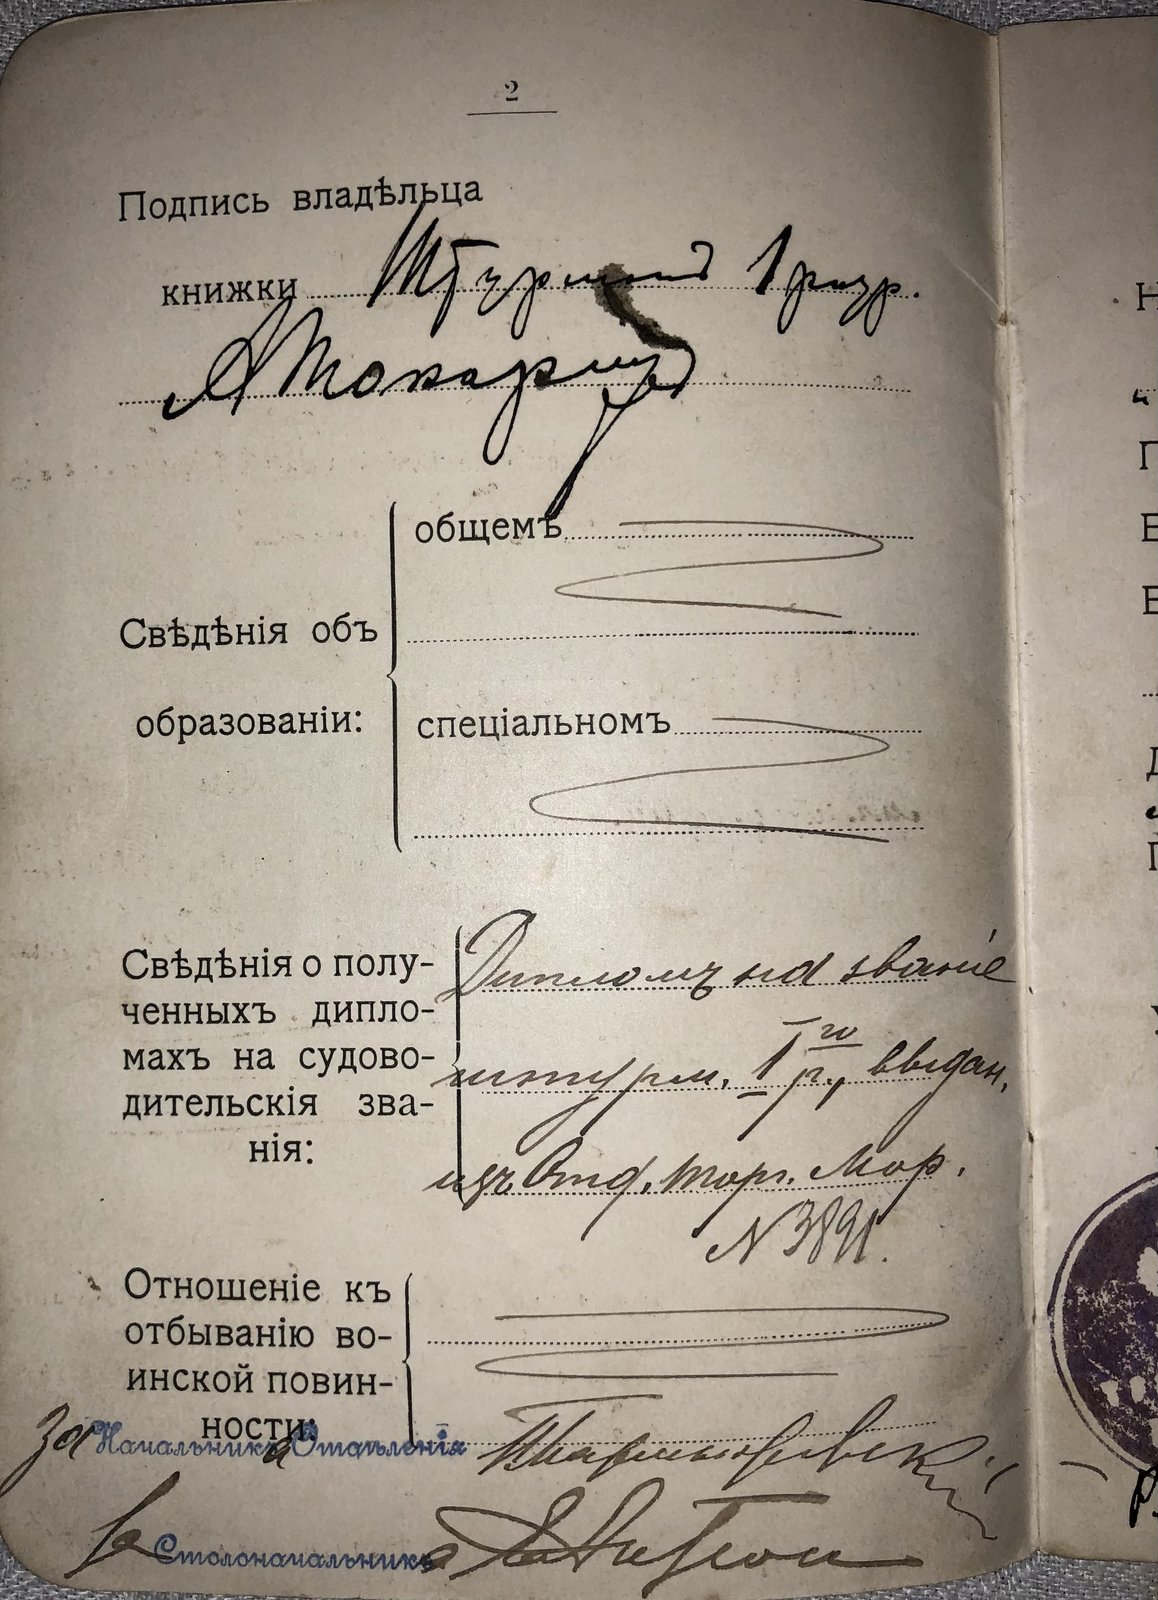 2
Подпись владѣльца
книжки Штурман 1 разр.
А Токарж
общемъ
Свѣдѣнія объ
образованіи:
спеціальномъ
Свѣдѣнія о полу-
ченныхъ дипло-
махъ на судово-
дительскія зва-
нія:
Дипломъ на званіе
штурм. 1го р., выдан.
изъ Отд. торг. мор.
N 3891.
Отношеніе къ
отбыванію во-
инской повин-
ности:
За Начальника Отдѣленія
Столоначальника